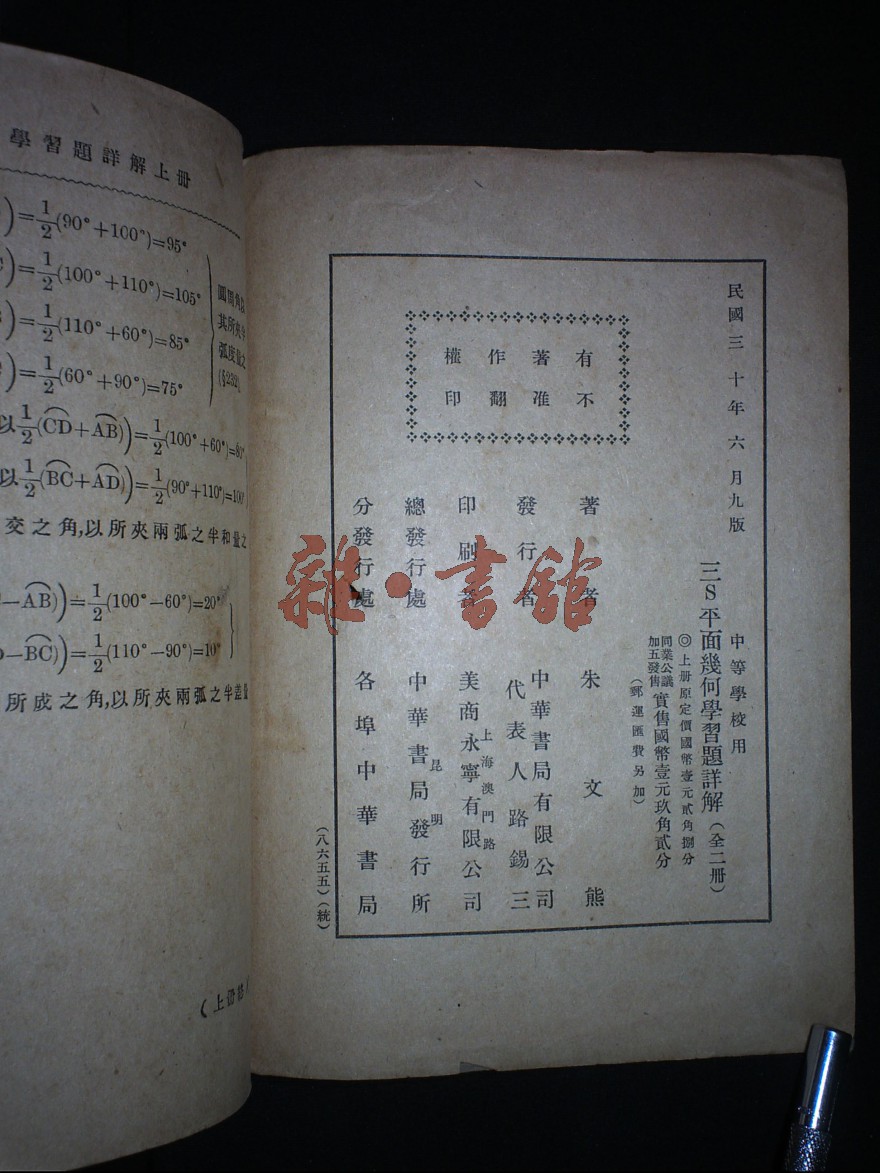 學習題詳解上册
)=1/2(90°+100°)=95°
)=1/2(100°+110°)=105°
)=1/2(110°+60°)=85°
)=1/2(60°+90°)=75°
圓內角以
其所夾半
弧度量之
(§232)
以1/2(⌒CD+⌒AB))=1/2(100°+60°)=80°
以1/2(⌒BC+⌒AD))=1/2(90°+110°)=100°
交之角,以所夾兩弧之半和量之
−⌒AB))=1/2(100°−60°)=20°
−⌒BC))=1/2(110°−90°)=10°
所成之角,以所夾兩弧之半差量
(上册終)
民國三十年六月九版
中等學校用
三S平面幾何學習題詳解(全二冊)
◎上册原定價國幣壹元貳角捌分
同業公議
加五發售
實售國幣壹元玖角貳分
(郵運匯費另加)
有不
著准
作翻
權印
著者 朱文熊
發行者 中華書局有限公司
代表人路錫三
上海澳門路
印刷者 美商永寧有限公司
昆明
總發行處 中華書局發行所
分發行處 各埠中華書局
(八六五五)(統)
雜·書館